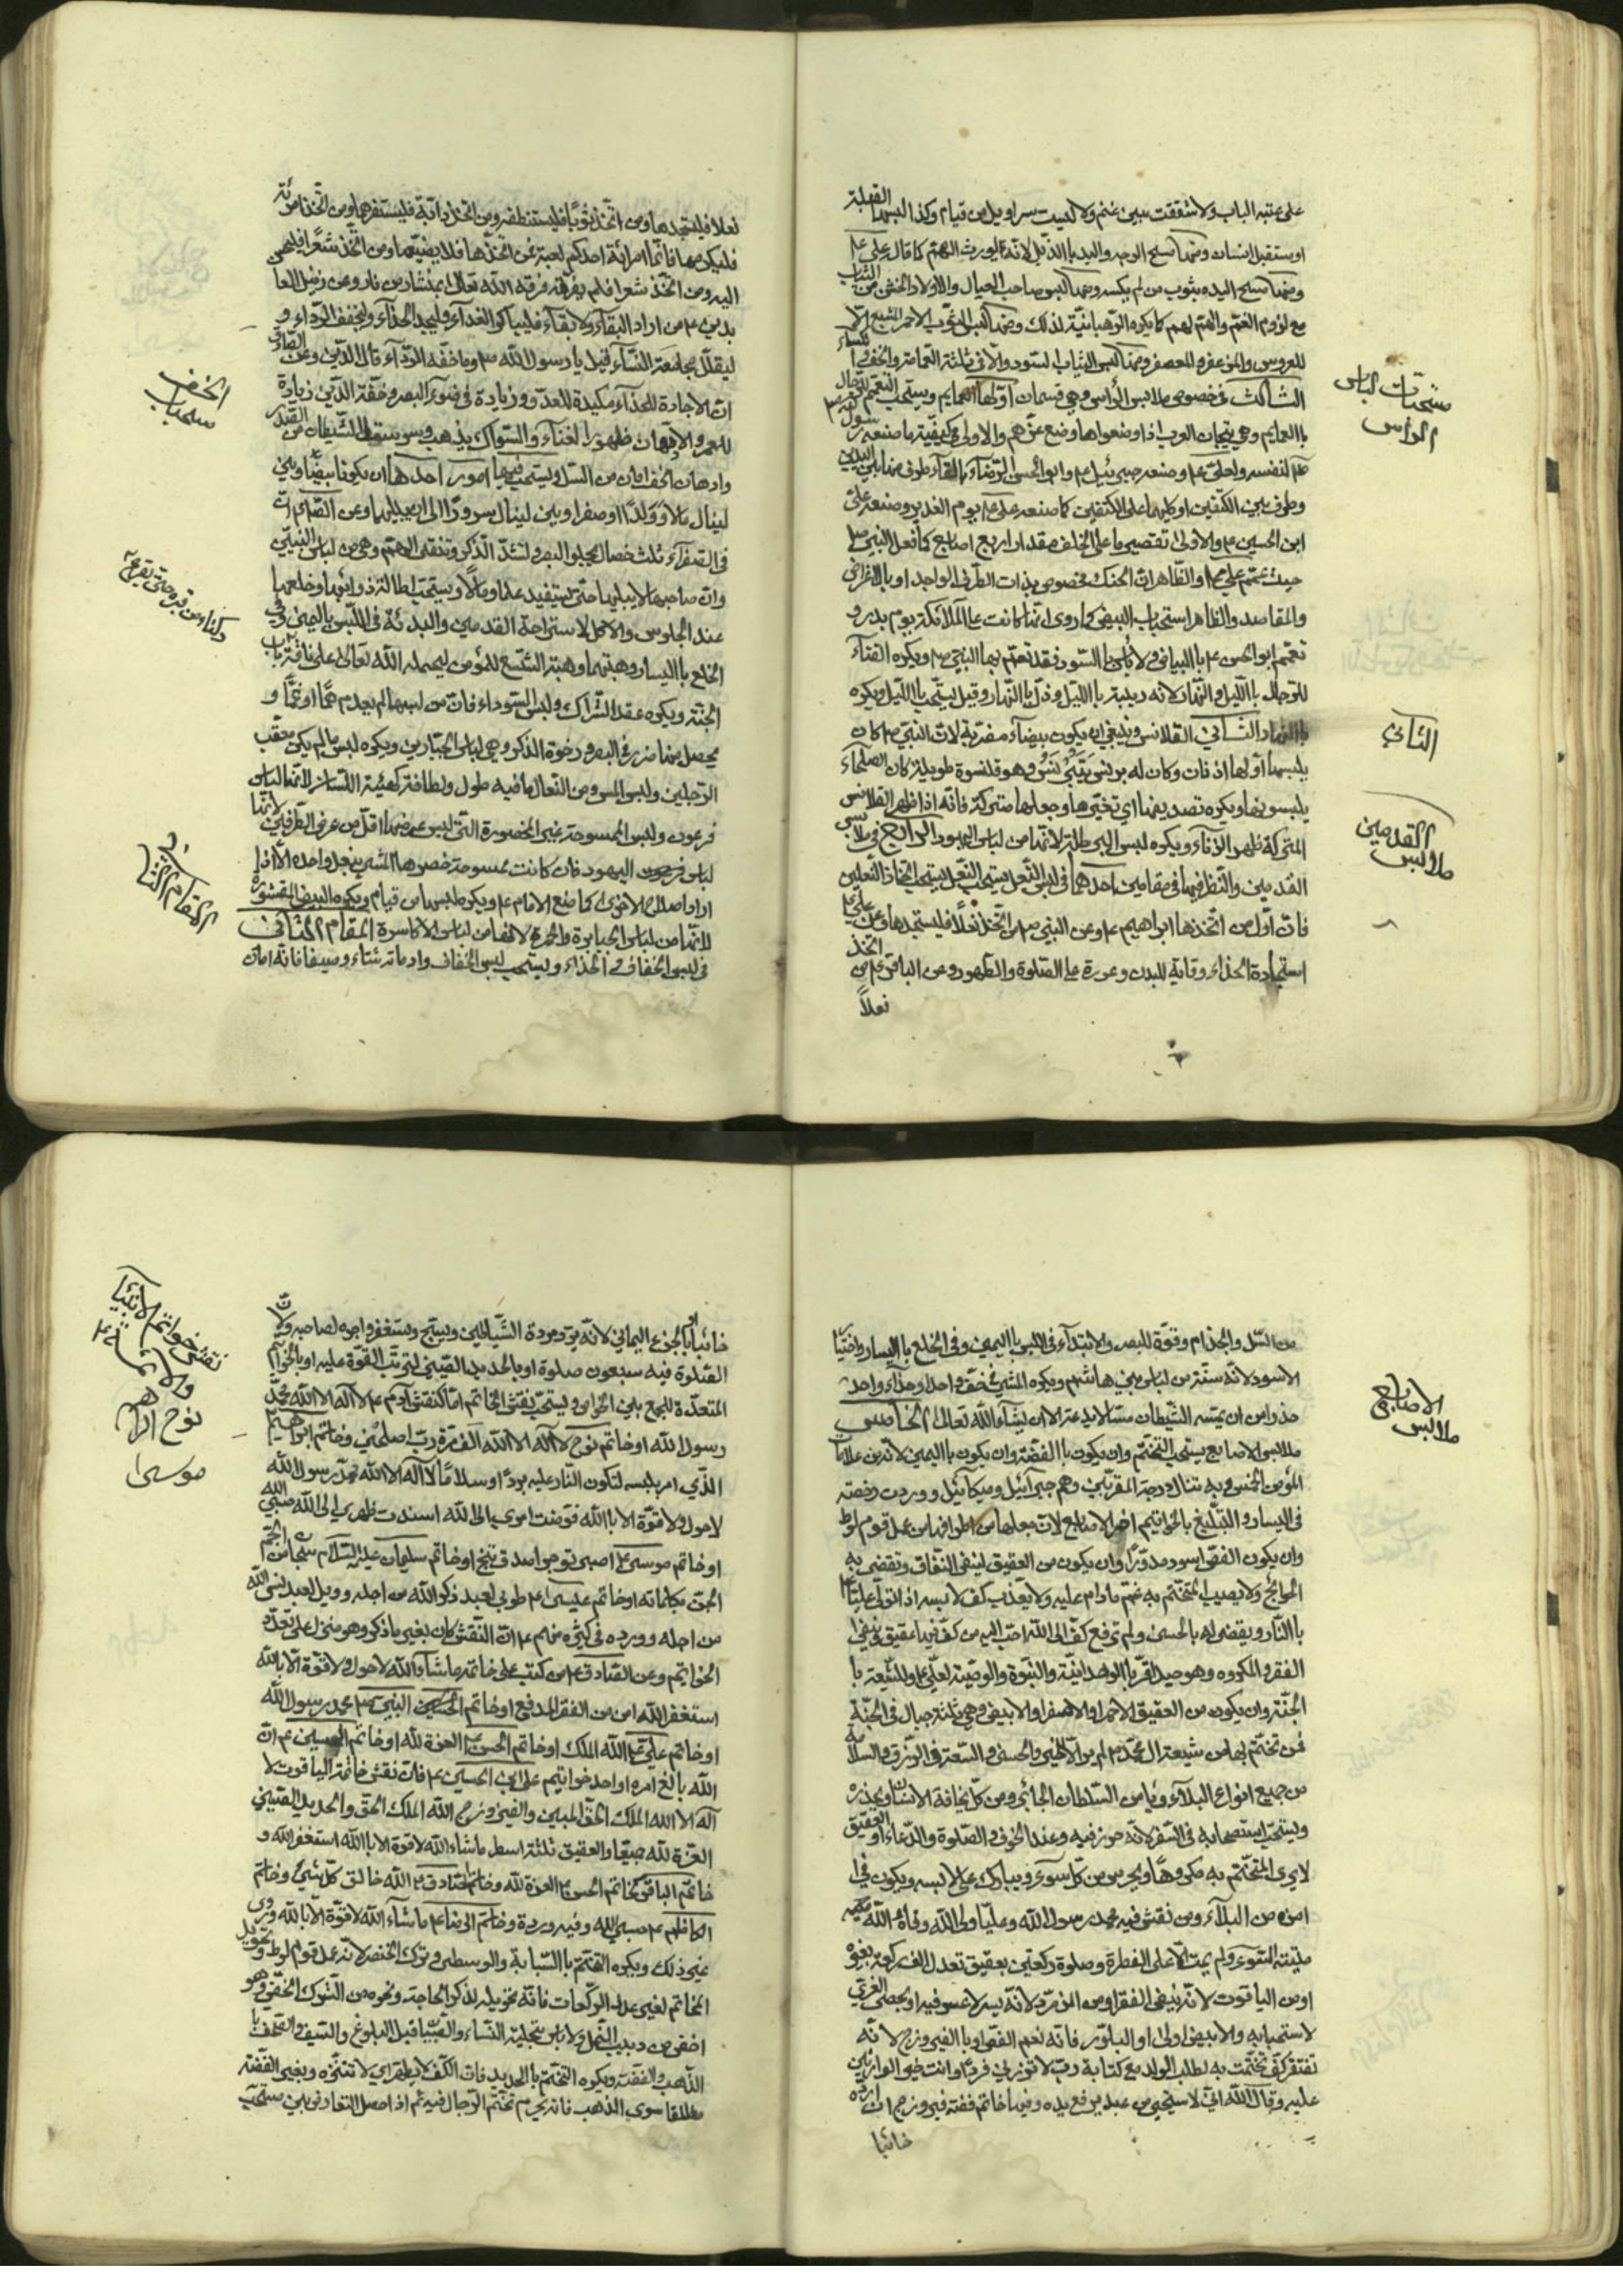 على عتبه الباب ولا شققت بين غنم ولا لبست سراويل من قيام وكذا لبسها القبلة
او مستقبل انسان ومنها مسح الوجه واليد باالذيل لانه يورث الهم كما قال علي ع
ومنها مسح اليد بثوب من لم يكسه ومنها لبس صاحب العيال والاولاد الخشن من الثياب
مع لزوم الغم والهم لهم كما يكره الرهبانية لذلك ومنها لبس الثوب الاحمر المشبع الا
للعروس والمزعفر والمعصفر ومنها لبس الثياب السود والا في ثلثة العمامة والخف والكساء
الثالث في خصوص ملابس الراس وهي قسمان اولها العمايم ويستحب التعمم للرجال
باالعمايم وهي تيجان العرب اذا وضعوها وضع عزهم والاولى في كيفيته ما صنعه رسول الله ص
لنفسه ولعلي ع وصنعه جبرئيل ع وابو الحسن الرضا ع بالقاء طرف منها بين اليدين
وطرف بين الكتفين او كليهما على الكتفين كما صنعه علي ع يوم الغدير وصنعه علي
ابن الحسين ع والاولى تقصير ما على الخلف مقدار اربع اصابع كما فعل النبي ص
حيث عمم علي ع والظاهر ان الحنك مخصوص بذات الطرف الواحد او باالاعرابي
والمقاصد والظاهر استحباب البيض كما روى انها كانت على الملائكة يوم بدر و
تعمم ابو الحسن ع باالبياض ولا باس باالسود فقد تعمم بها النبي ص ويكره القناع
للرجال باالليل والنهار لانه ريبة باالليل وذل باالنهار وقيل يستحب باالليل ويكره
باالنهار الثاني القلانس وينبغي ان يكون بيضاء مضربة لان النبي ص كان
يلبسها اولها اذنان وكان له برنس يتبرنس وهو قلنسوة طويلة كان الصلحاء
يلبسونها ويكره تصديمها اي تختيرها وجعلها متركة فانه اذا ظهر القلانس
المتركة ظهر الزناء ويكره لبس البرطلة لانها من لباس اليهود الرابع في ملابس
القدمين والنظر فيها في مقامين احدهما في لبس النعل يستحب النعل يستحب اتخاذ النعلين
فان اول من اتخذها ابراهيم ع وعن النبي ص من اتخذ نعلا فليستجدها وعن علي ع
استجادة الحذاء وقاية للبدن وعون على الصلوة والطهور وعن الباقر ع من اتخذ
نعلاً
مستحبات لباس
الراس
الثاني
القدمين
ملابس
نعلا فليستجدها ومن اتخذ ثوبا فليستنظفه ومن اتخذ دابة فليستفرهها ومن اتخذ امرئة
فليكرمها فانما امرائة احدكم لعبة فمن اتخذها فلا يضيعها ومن اتخذ شعرا فليحسن
اليه ومن اتخذ شعرا فلم يفرقه فرقه الله تعالى بمنشار من نار وعن زين العا
بدين ع من اراد البقاء ولا بقاء فليباكر الغداء وليجد الحذاء وليخفف الرداء و
ليقلل مجامعة النساء قيل يا رسول الله ص وما خفة الرداء قال الدين وعن الصادق
ان الاجادة للحذاء مكيدة للعدو وزيادة في ضوء البصر وخفة الدين زيادة
للعمر والادهان ظهور الغناء والسواك يذهب وسوسة الشيطان من الصدر
وادهان الخف امان من السل ويستحب فيها امور احدها ان يكونا بيضاوين
لينال مالا وولدا او صفراوين لينال سرورا الى ان يبليهما وعن الصادق ع ان
في الصفراء ثلث خصال تجلو البصر وتشد الذكر وتنفي الهم وهي من لباس النبيين
وان صاحبها لا يبليها حتى يستفيد علما او مالا ويستحب اطالة ذوائبها وخلعهما
عند الجلوس والاكل لاستراحة القدمين والبدئة في اللبس باليمين وفي
الخلع باليسار وهبتهما وهبة الشسع للمؤمن ليحمله الله تعالى على ناقة باب
الجنة ويكره عقد الشراك ولبس السوداء فان من لبسها لم يعدم هما او غما و
يحصل منها ضرر في البصر ورخوة الذكر وهي لباس الجبارين ويكره لبس ما لم يكن معقب
الرجلين ولبس الملس ومن النعال ما فيه طول ولطافة كهيئة اللسان لانها لباس
فرعون ولبس الممسوحة غير المخصورة التي ليس عرضها اقل من عرض الطرفين لانها
لباس اليهود فان كانت ممسوحة خصرها المشي بنعل واحدة الا اذا
اراد اصلاح الاخرى كما صنع الامام ع ويكره لبسها من قيام ويكره البيض المقشورة
لانها من لباس الجبابرة والحمرة لانها من لباس الاكاسرة المقام الثاني
في لبس الخفاف في الحذاء ويستحب لبس الخفاف وادمانه شتاء وصيفا فانه امان
الخف
مستحبات
المقام الثاني
من السل والجذام وقوة للبصر والابتداء في اللبس باليمين وفي الخلع باليسار واختيار
الاسود لانه سنة من لباس بني هاشم ويكره المشي في خف واحد او حذاء واحد
حذرا من ان يمسه الشيطان مسا لا يدعه الا ان يشاء الله تعالى الخامس
ملابس الاصابع يستحب التختم وان يكون باالفضة وان يكون باليمين لانه من علامات
المؤمن الخمس وبه تنال درجة المقربين وهم جبرآئيل وميكائيل ووردت رخصته
في اليسار والتبليغ بالخواتيم اخر الاصابع لان جعلها من اطرافها من عمل قوم لوط
وان يكون الفص اسود مدورا وان يكون من العقيق لينفي النفاق وتقضى به
الحوائج ولا يصيب المتختم به غم مادام عليه ولا يعذب كف لابسه اذا تولى عليا ع
باالنار ويقضى له بالحسنى ولم ترفع كف الى الله احب اليه من كف فيها عقيق وينفي
الفقر والمكروه وهو جبل اقر باالوحدانية والنبوة والوصية لعلي ع وللشيعة با
الجنة وان يكون من العقيق الاحمر او الاصفر او الابيض وهي ثلثة جبال في الجنة
فمن تختم بها من شيعة ال محمد ص لم ير الا الخير والحسنى والسعة في الرزق والسلامة
من جميع انواع البلاء ويامن السلطان الجائر ومن كل ما يخافه الانسان ويحذره
ويستحب استصحابه في السفر لانه حرز فيه وعند الخوف والصلوة والدعاء او العقيق
لا يرى المتختم به مكروها ويحرس من كل سوء ويبارك على لابسه ويكون في
امن من البلاء ومن نقش فيه محمد رسول الله وعليا ولي الله وقاه الله
ميتة السوء ولم يمت الا على الفطرة وصلوة ركعتين بعقيق تعدل الف ركعة بغيره
او من الياقوت لانه ينفي الفقر او من الزمرد لانه يسر لا عسر فيه او بحصى الغري
لاستحبابه والابيض اولى او البلور فانه نعم الفص او باالفيروزج لانه
تفتقر كف تختمت به لطلب الولد مع كتابة رب لا تذرني فردا وانت خير الوارثين
عليه وقال الله اني لاستحيي من عبد يرفع يده وفيها خاتم فصه فيروزج ان ارده
خائبا
الاصابع
ملابس
خائبا او بالجزع اليماني لانه يرد مردة الشياطين ويسبح ويستغفر واجره لصاحبه ولان
الصلوة فيه سبعون صلوة او بالحديد الصيني لترتب القوة عليه او بالخواتم
المتعددة للجمع بين الخواص ويستحب نقش الخاتم اما كنقش آدم ع لا اله الا الله محمد
رسول الله او خاتم نوح لا اله الا الله الف مرة رب اصلحني وخاتم ابراهيم ع
الذي امر بلبسه لتكون النار عليه بردا وسلاما لا اله الا الله محمد رسول الله
لا حول ولا قوة الا باالله فوضت امري الى الله اسندت ظهري الى الله حسبي الله
او خاتم موسى ع اصبر تؤجر اصدق تنج او خاتم سليمان عليه السلام سبحان من الجم
الجن بكلماته او خاتم عيسى ع طوبى لعبد ذكر الله من اجله وويل لعبد نسى الله
من اجله وورد في كثير منهم ع ان النقش كان بغير ما ذكر وهو منزل على تعدد
الخواتيم وعن الصادق ع من كتب على خاتمه ما شاء الله لا حول ولا قوة الا بالله
استغفر الله امن من الفقر المدقع او خاتم النبي ص محمد رسول الله
او خاتم علي ع الله الملك او خاتم الحسن ع العزة لله او خاتم الحسين ع ان
الله بالغ امره او احد خواتيم علي ابن الحسين ع فان نقش خاتمه الياقوت لا
اله الا الله الملك الحق المبين والفيروزج الله الملك الحق والحديد الصيني
العزة لله جميعا والعقيق ثلثة اسطر ماشاء الله لا قوة الا باالله استغفر الله و
خاتم الباقر كخاتم الحسن ع العزة لله وخاتم الصادق ع الله خالق كل شئ وخاتم
الكاظم ع حسبي الله وفيه وردة وخاتم الرضا ع ما شاء الله لا قوة الا بالله وروى
غير ذلك ويكره التختم باالسبابة والوسطى وترك الخنصر لانه عمل قوم لوط وتحويل
الخاتم لغير عدد الركعات فانه تحويله لذكر الحاجة ونحوه من الشرك الخفي وهو
اخفى من دبيب النمل ولا باس بتحلية النساء والصبيان قبل البلوغ والسيف والمصحف با
الذهب والفضة ويكره التختم بالحديد فان الكف لا يطهر اي لا تتنزه وبغير الفضة
مطلقا سوى الذهب فانه يحرم تختم الرجال فيه ثم اذا حصل التعارض بين مستحب
نقش خواتم الانبياء
والائمة ع
نوح ابراهيم
موسى ع